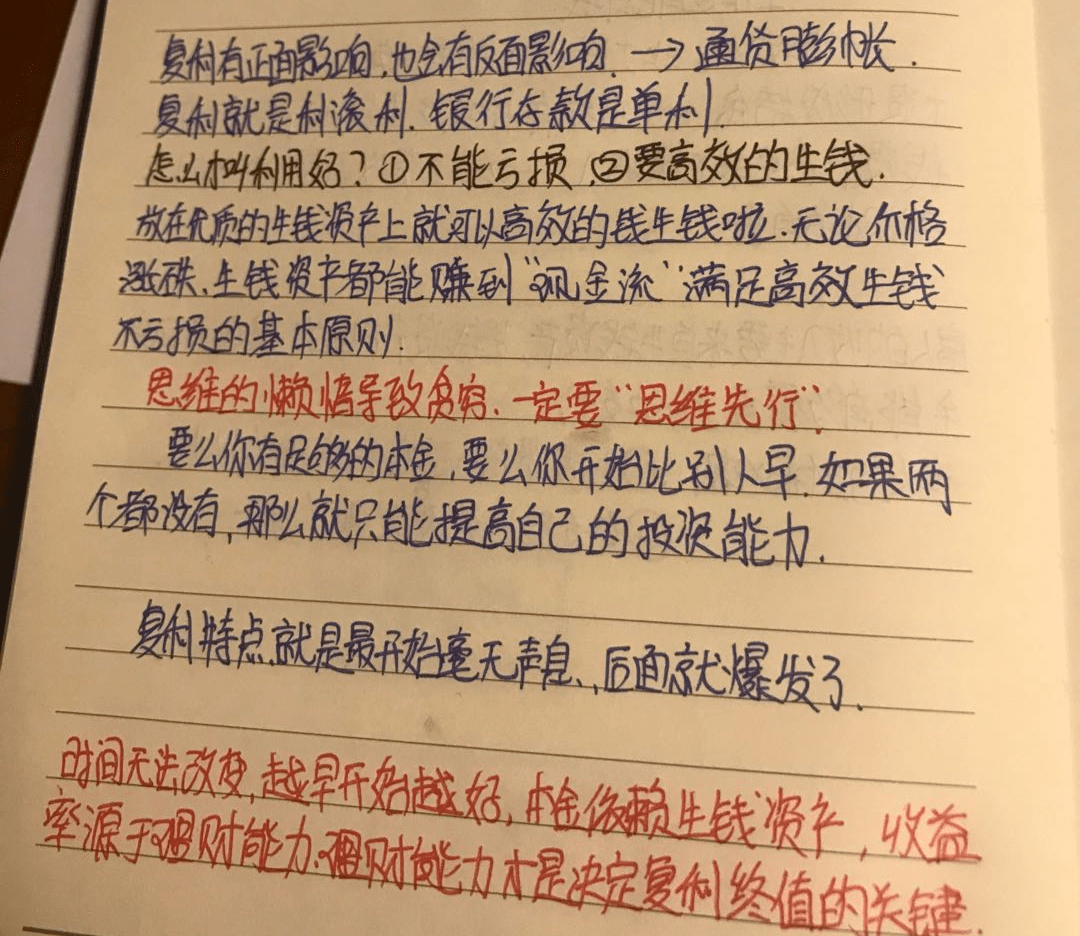 复利有正面影响,也会有反面影响. → 通货膨帐.
复利就是利滚利.银行存款是单利.
怎么才叫利用好?①不能亏损.②要高效的生钱.
放在优质的生钱资产上就可以高效的钱生钱啦.无论价格
涨跌、生钱资产都能赚到“现金流”满足高效生钱
不亏损的基本原则.
思维的懒惰导致贫穷、一定要“思维先行”.
要么你有足够的本金,要么你开始比别人早.如果两
个都没有,那么就只能提高自己的投资能力.
复利特点就是最开始毫无声息、后面就爆发了.
时间无法改变,越早开始越好,本金依赖生钱资产,收益
率源于理财能力.理财能力才是决定复利终值的关键.